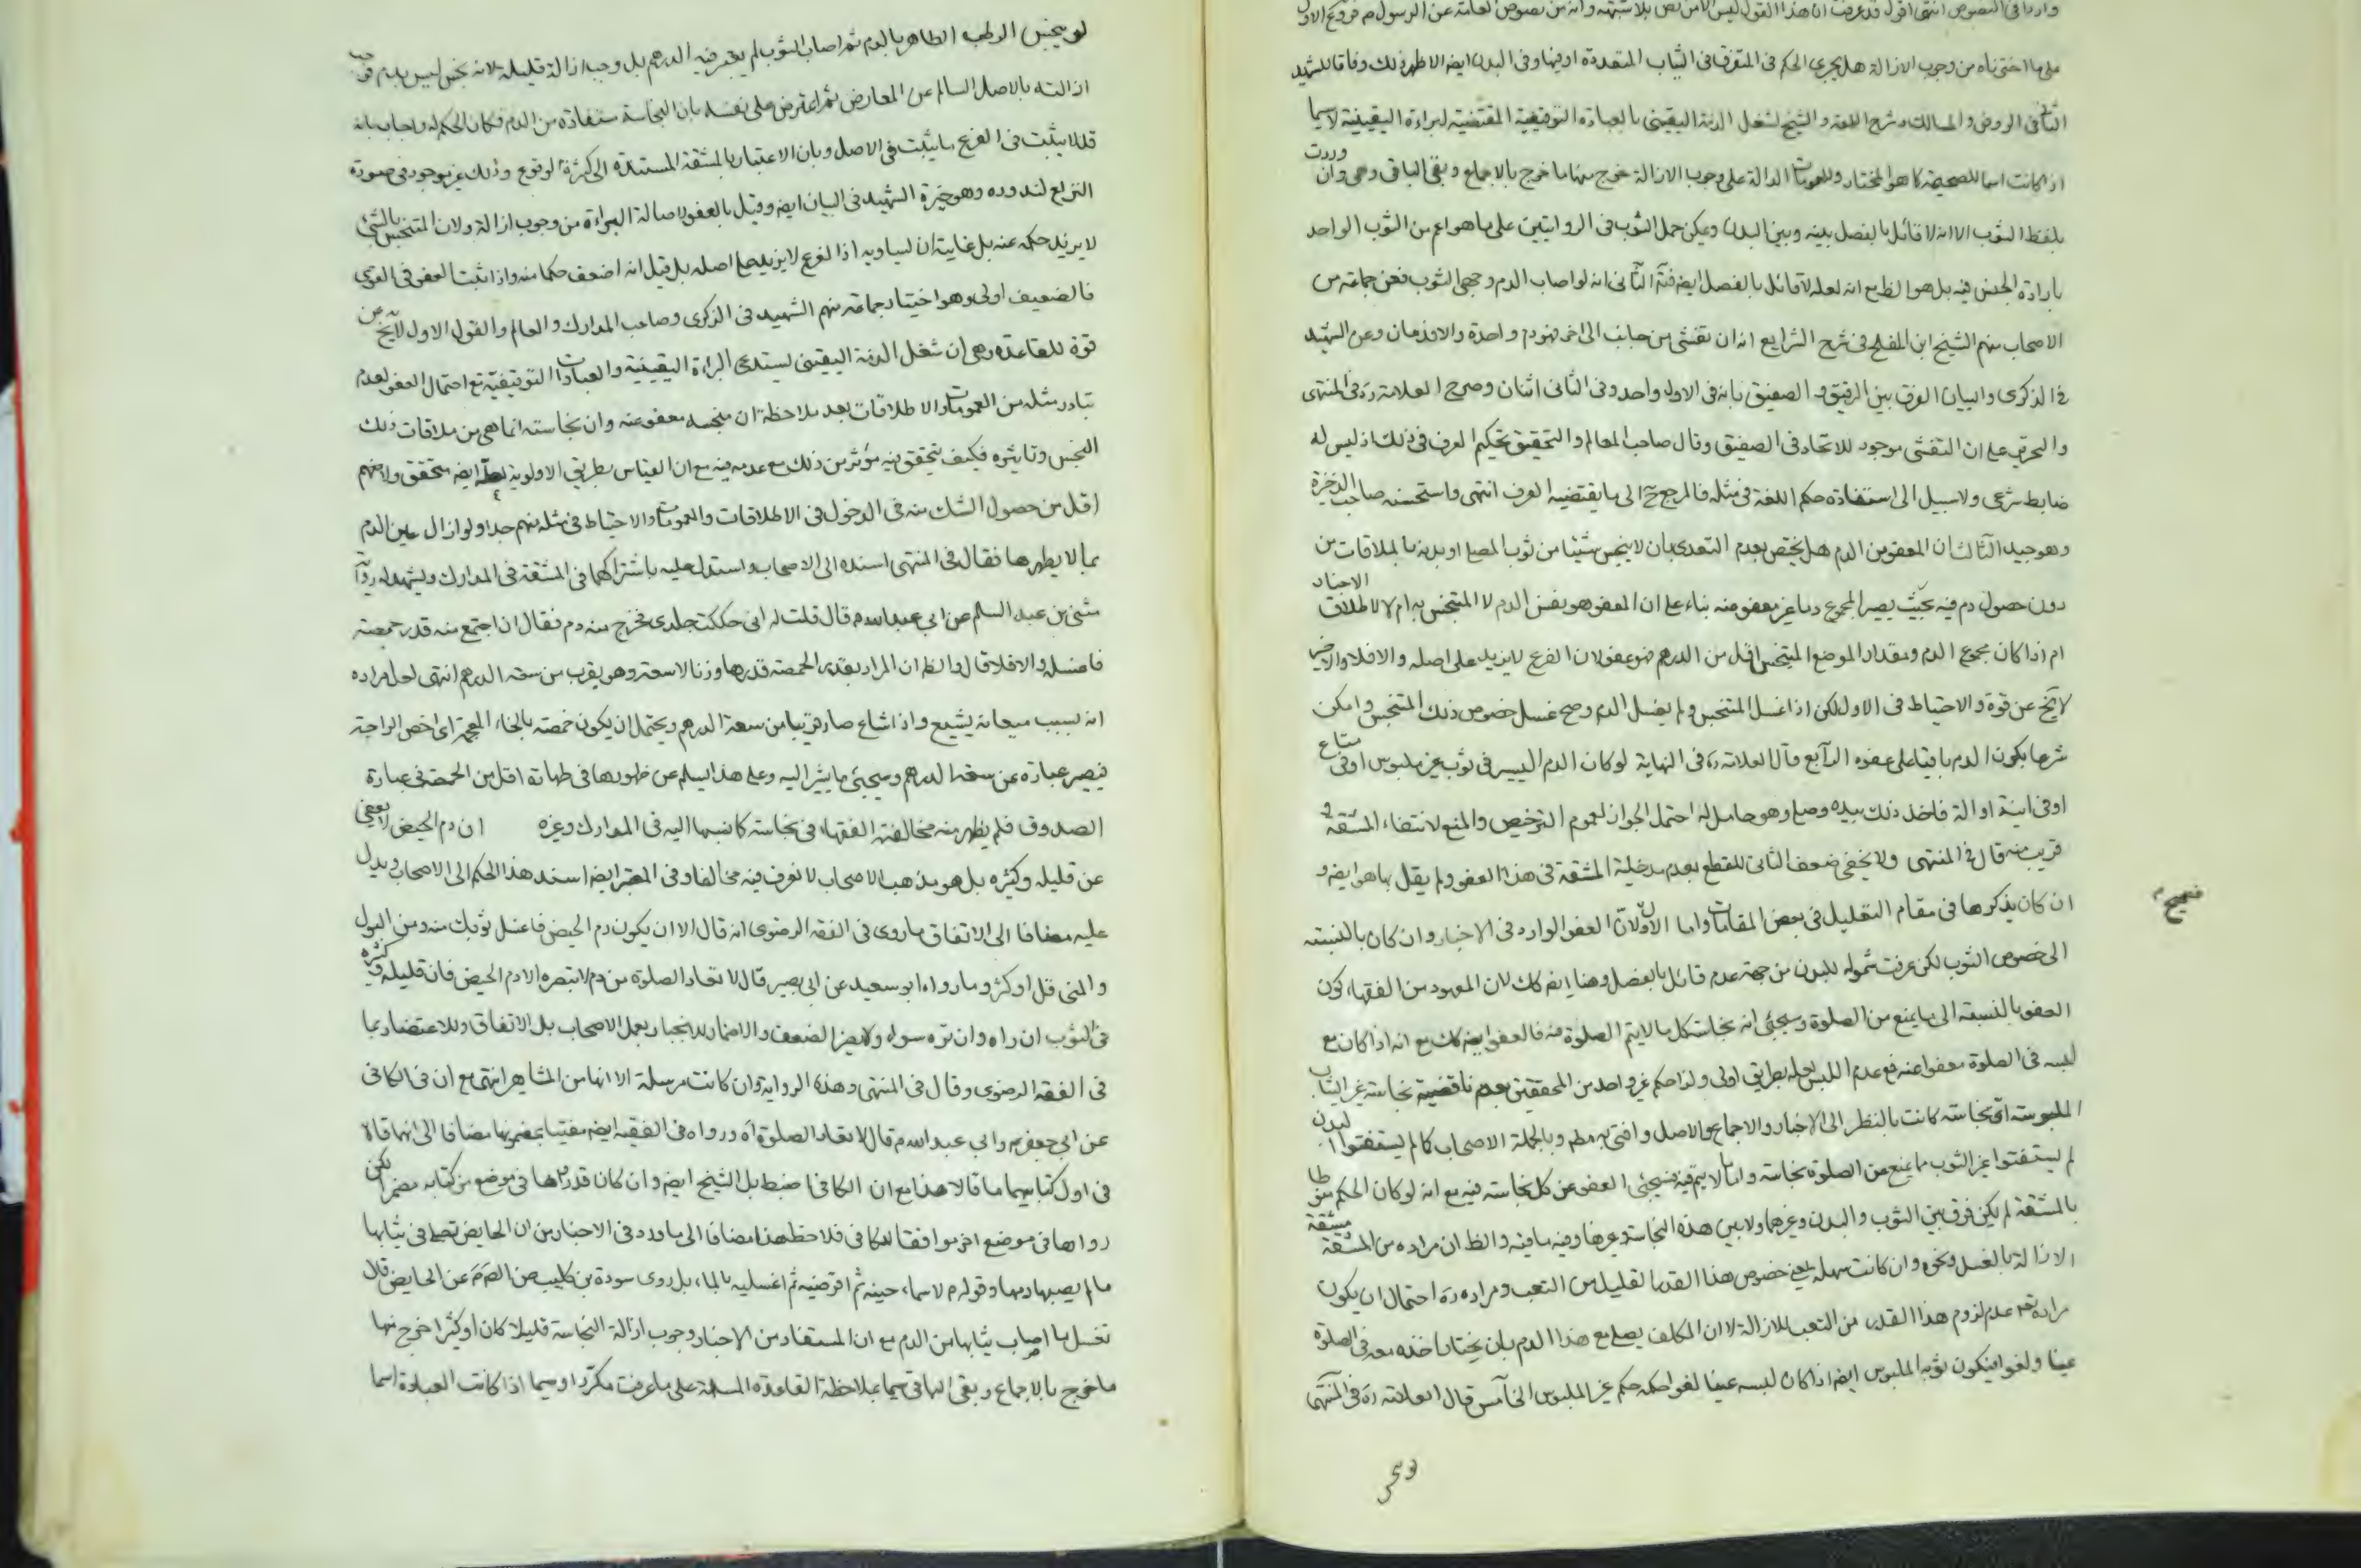 واردا في النصوص انتهى اقول قد عرفت ان هذا القول ليس الا من نص بلا شبهة وانه من نصوص العامة عن الرسول ثم فروع الاول
على ما اخترناه من وجوب الازالة هل يجرى الحكم في المتفرق في الثياب المتعددة او فيها وفي البدن ايضا الاظهر ذلك وفاقا للشهيد
الثاني في الروض والمسالك وشرح اللمعة والشيخ لشغل الذمة اليقيني بالعبادة التوقيفية المقتضية لبراءة اليقينية لا سيما
اذا كانت اسما للصحيحة كما هو المختار وللعمومات الدالة على وجوب الازالة خرج منها ما خرج بالاجماع وبقى الباقي وهى وان وردت
بلفظ الثوب الا انه لا قائل بالفصل بينه وبين البدن ويمكن حمل الثوب في الروايتين على ما هو اعم من الثوب الواحد
بارادة الجنس فيه بل هو الظ مع انه لعله لا قائل بالفصل ايضا فت الثاني انه لو اصاب الدم وجهي الثوب فعن جماعة من
الاصحاب منهم الشيخ ابن المفلح في شرح الشرايع انه ان تفشى من جانب الى اخر فهو دم واحدة والا فدمان وعن الشهيد
في الذكرى والبيان الفرق بين الرقيق والصفيق بانه في الاول واحد وفي الثاني اثنان وصرح العلامة ره في المنتهى
والتحرير على ان التفشى موجود للاتحاد في الصفيق وقال صاحب المعالم والتحقيق تحكيم العرف في ذلك اذ ليس له
ضابط شرعى ولا سبيل الى استفادة حكم اللغة في مثله فالمرجع ح الى ما يقتضيه العرف انتهى واستحسنه صاحب الذخيرة
وهو جيد الثالث ان المعفو من الدم هل يختص بعدم التعدى بان لا ينجس شيئا من ثوب المصلى او بدنه بالملاقات من
دون حصول دم فيه بحيث يصير المجموع دما غير معفو عنه بناء على ان المعفو هو نفس الدم لا المتنجس به ام لا لاطلاق الاخبار
ام اذا كان مجموع الدم ومقدار الموضع المتنجس اقل من الدرهم فهو عفو لان الفرع لا يزيد على اصله والا فلا والاخير
لا يخ عن قوة والاحتياط في الاول لكن اذا غسل المتنجس ولم يغسل الدم وصح غسل خصوص ذلك المتنجس وامكن
شرعا يكون الدم باقيا على عفوه الرابع قال العلامة ره في النهاية لو كان الدم اليسير في ثوب غير ملبوس او في متاع
او في انية او الة فاخذ ذلك بيده وصلى وهو حامل له احتمل الجواز لعموم الترخيص والمنع لانتفاء المشقة و
قريب منه قال في المنتهى ولا يخفى ضعف الثاني للقطع بعدم مدخلية المشقة في هذا العفو ولم يقل بها هو ايضا و
ان كان يذكرها في مقام التعليل في بعض المقامات واما الاول لان العفو الوارد في الاخبار وان كان بالنسبة
الى خصوص الثوب لكن عرفت شموله للبدن من جهة عدم قائل بالفصل وهنا ايضا كك لان المعهود من الفقهاء كون
العفو بالنسبة الى ما يمنع من الصلوة وسيجئ انه نجاسة كل ما لا يتم الصلوة منه فالعفو ايضا كك مع انه اذا كان مع
لبسه في الصلوة معفوا عنه فمع عدم اللبس لعله بطريق اولى ولذا حكم غير واحد من المحققين بعدم ناقضية نجاسة غير الثياب
الملبوسة اى نجاسة كانت بالنظر الى الاخبار والاجماع والاصل وافتى به مط وبالجملة الاصحاب كما لم يستفتوا البدن
لم يستفتوا غير الثوب ما يمنع من الصلوة نجاسته واما ما لا يتم فيه فسيجئ العفو عن كل نجاسة فيه مع انه لو كان الحكم منوطا
بالمشقة لم يكن فرق بين الثوب والبدن وغيرهما ولا بين هذه النجاسة وغيرها وفيه ما فيه والظ ان مراده من المشقة مشقة
الازالة بالغسل ونحوه وان كانت سهلة يعنى خصوص هذا القدر القليل من التعب ومراده ره احتمال ان يكون
مراده تعم عدم لزوم هذا القدر من التعب للازالة لا ان المكلف يصلى مع هذا الدم بان يختار اخذه معه في الصلوة
عبثا ولغوا فيكون ثوبه الملبوس ايضا اذا كان لبسه عبثا لغوا حكمه حكم غير الملبوس الخامس قال العلامة ره في المنتهى
صحيح
لو نجس
لو نجس الرطب الطاهر بالدم ثم اصاب الثوب لم يعتبر فيه الدرهم بل وجب ازالة قليله لانه نجس ليس بدم فوجب
ازالته بالاصل السالم عن المعارض ثم اعترض على نفسه بان النجاسة مستفادة من الدم فكان الحكم له واجاب بانه
قد لا يثبت في الفرع ما يثبت في الاصل وبان الاعتبار بالمشقة المستندة الى كثرة الوقوع وذلك غير موجود في صورة
النزاع لندوره وهو خيرة الشهيد في البيان ايضا وقيل بالعفو لاصالة البراءة من وجوب ازالة ولان المتنجس بالشئ
لا يزيد حكمه عنه بل غايته ان يساويه اذا الفرع لا يزيد على اصله بل قيل انه اضعف حكما منه واذا ثبت العفو في القوى
فالضعيف اولى وهو اختيار جماعة منهم الشهيد في الذكرى وصاحب المدارك والمعالم والقول الاول لا يخ عن
قوة للقاعدة وهى ان شغل الذمة اليقيني يستدعى البراءة اليقينية والعبادات التوقيفية مع احتمال العفو لعدم
تبادر مثله من العمومات والاطلاقات بعد ملاحظة ان منجسه معفو عنه وان نجاسته انما هى من ملاقات ذلك
النجس وتاثيره فكيف يتحقق فيه مؤثر من ذلك مع عدمه فيه مع ان القياس بطريق الاولوية لعله ايضا متحقق ولا منهم
اقل من حصول الشك منه في الدخول في الاطلاقات والعمومات والاحتياط في مثله مهم جدا ولو ازال عين الدم
بما لا يطهرها فقال في المنتهى اسنده الى الاصحاب واستدل عليه باشتراكهما في المشقة في المدارك ويشهد له رواية
مثنى بن عبد السلم عن ابى عبد الله م قال قلت له انى حككت جلدى فخرج منه دم فقال ان اجتمع منه قدر حمصة
فاغسله والا فلا قال والظ ان المراد بقدر الحمصة قدرها وزنا لا سعة وهو يقرب من سعة الدرهم انتهى لعل مراده
انه بسبب ميعانه يشيع واذا شاع صار قريبا من سعة الدرهم ويحتمل ان يكون خمصة بالخاء المعجمة اى اخمص الراحة
فيصير عبارة عن سعة الدرهم وسيجئ ما يشير اليه وعلى هذا يسلم عن ظهورها في طهارة اقل من الحمصة في عبارة
الصدوق فلم يظهر منه مخالفة الفقهاء في نجاسته كما نسبها اليه في المدارك وغيره ان دم الحيض لا يعفى
عن قليله وكثيره بل هو مذهب الاصحاب لا نعرف فيه مخالفا وفي المعتبر ايضا اسند هذا الحكم الى الاصحاب ويدل
عليه مضافا الى الاتفاق ما روى في الفقه الرضوى انه قال الا ان يكون دم الحيض فاغسل ثوبك منه ومن البول
والمنى قل او كثر وما رواه ابو سعيد عن ابى بصير قال لا تعاد الصلوة من دم لا تبصره الا دم الحيض فان قليله وكثيره
في الثوب ان راه وان لم يره سواء ولا يضر الضعف والاضمار للانجبار بعمل الاصحاب بل الاتفاق وللاعتضاد بما
في الفقه الرضوى وقال في المنتهى وهذه الرواية وان كانت مرسلة الا انها من المشاهير انتهى مع ان في الكافى
عن ابى جعفر م وابى عبد الله م قال لا تعاد الصلوة اه ورواه في الفقيه ايضا مفتيا بمضمونها مضافا الى انهما قالا
في اول كتابيهما ما قالا هذا مع ان الكافى اضبط بل الشيخ ايضا وان كان قد رواها في موضع من كتابه مضمرا لكن
رواها في موضع اخر موافقا للكافى فلاحظ هذا مضافا الى ما ورد في الاخبار من ان الحايض تصلى في ثيابها
ما لم يصبها دمها وقوله م لاسماء حتيه ثم اقرصيه ثم اغسليه بالماء بل روى سورة بن كليب عن الصم عن الحايض قال
تغسل ما اصاب ثيابها من الدم مع ان المستفاد من الاخبار وجوب ازالة النجاسة قليلا كان او كثيرا خرج منها
ما خرج بالاجماع وبقى الباقى سيما بملاحظة القاعدة المسلمة على ما عرفت مكررا وسيما اذا كانت العبادة اسما